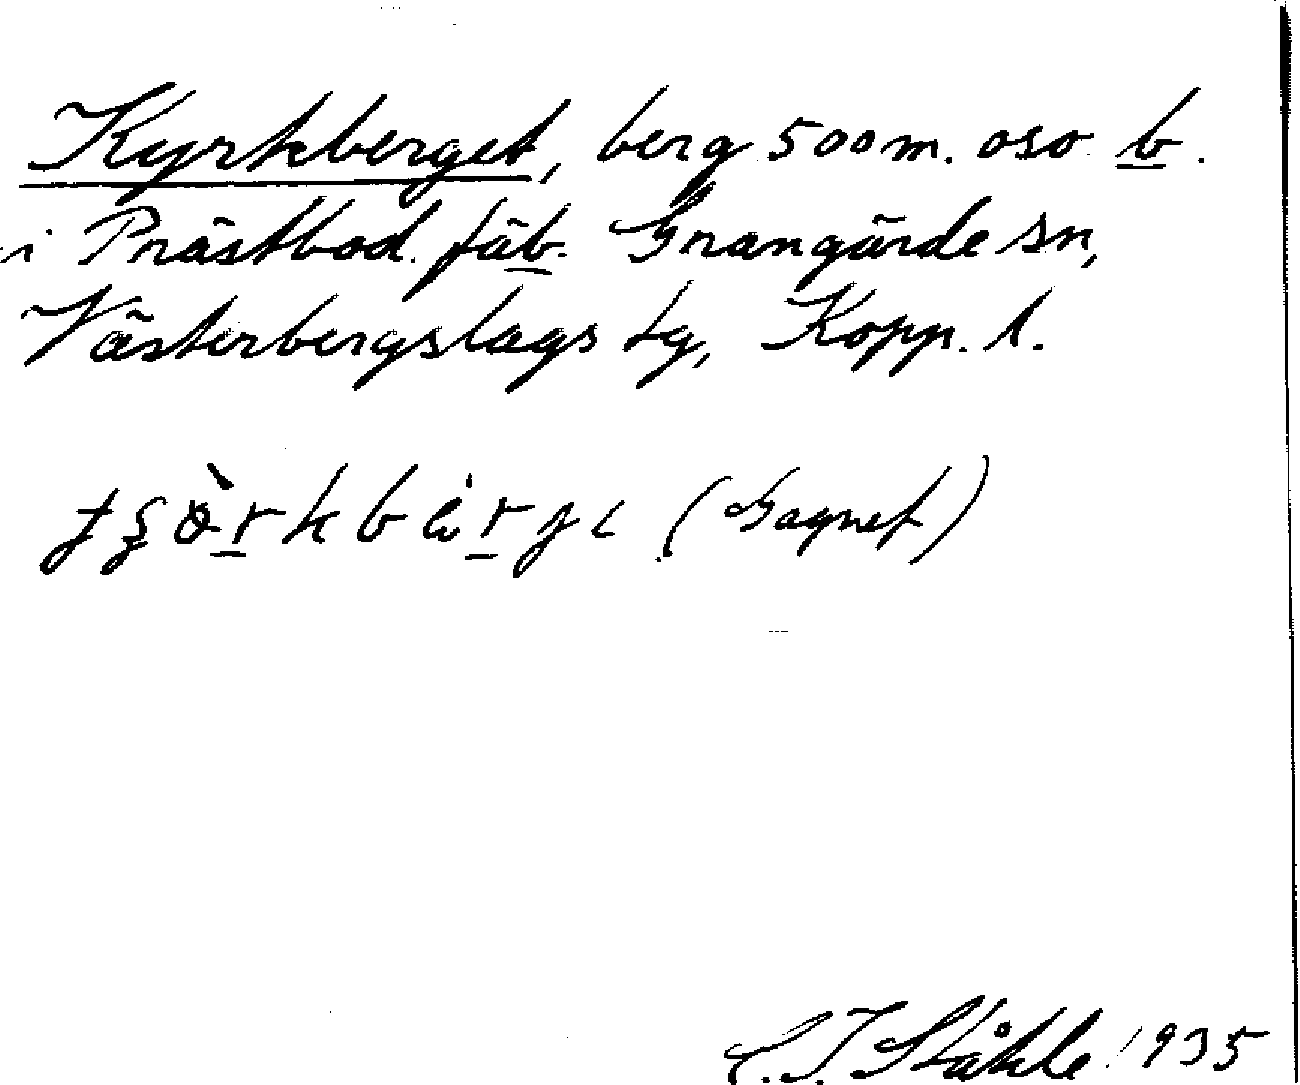 Kyrkberget, berg 500 m. oso b.
i Prästbod. fäb. Grangärde sn,
Västerbergslags tg, Kopp. l.
(Gagnef)
C. I. Ståhle 1935